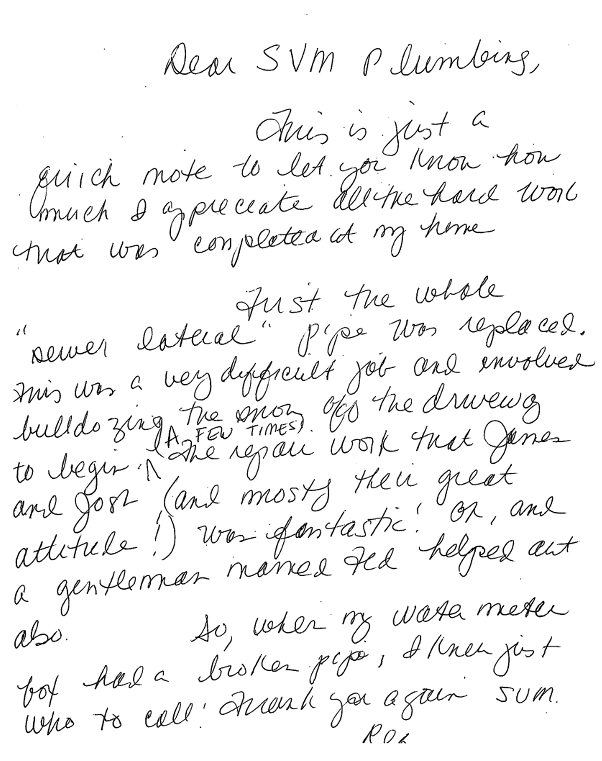 Dear SVM Plumbing,
This is just a
quick note to let you know how
much I appreciate all the hard work
that was completed at my home
First the whole
"sewer lateral" pipe was replaced.
This was a very difficult job and involved
bulldozing the snow off the driveway
(A FEW TIMES).
to begin. The repair work that James
and Josh (and mostly their great
attitude!) was fantastic! Oh, and
a gentleman named Ted helped out
also. So, when my water meter
box had a broken pipe, I knew just
who to call! Thank you again SVM.